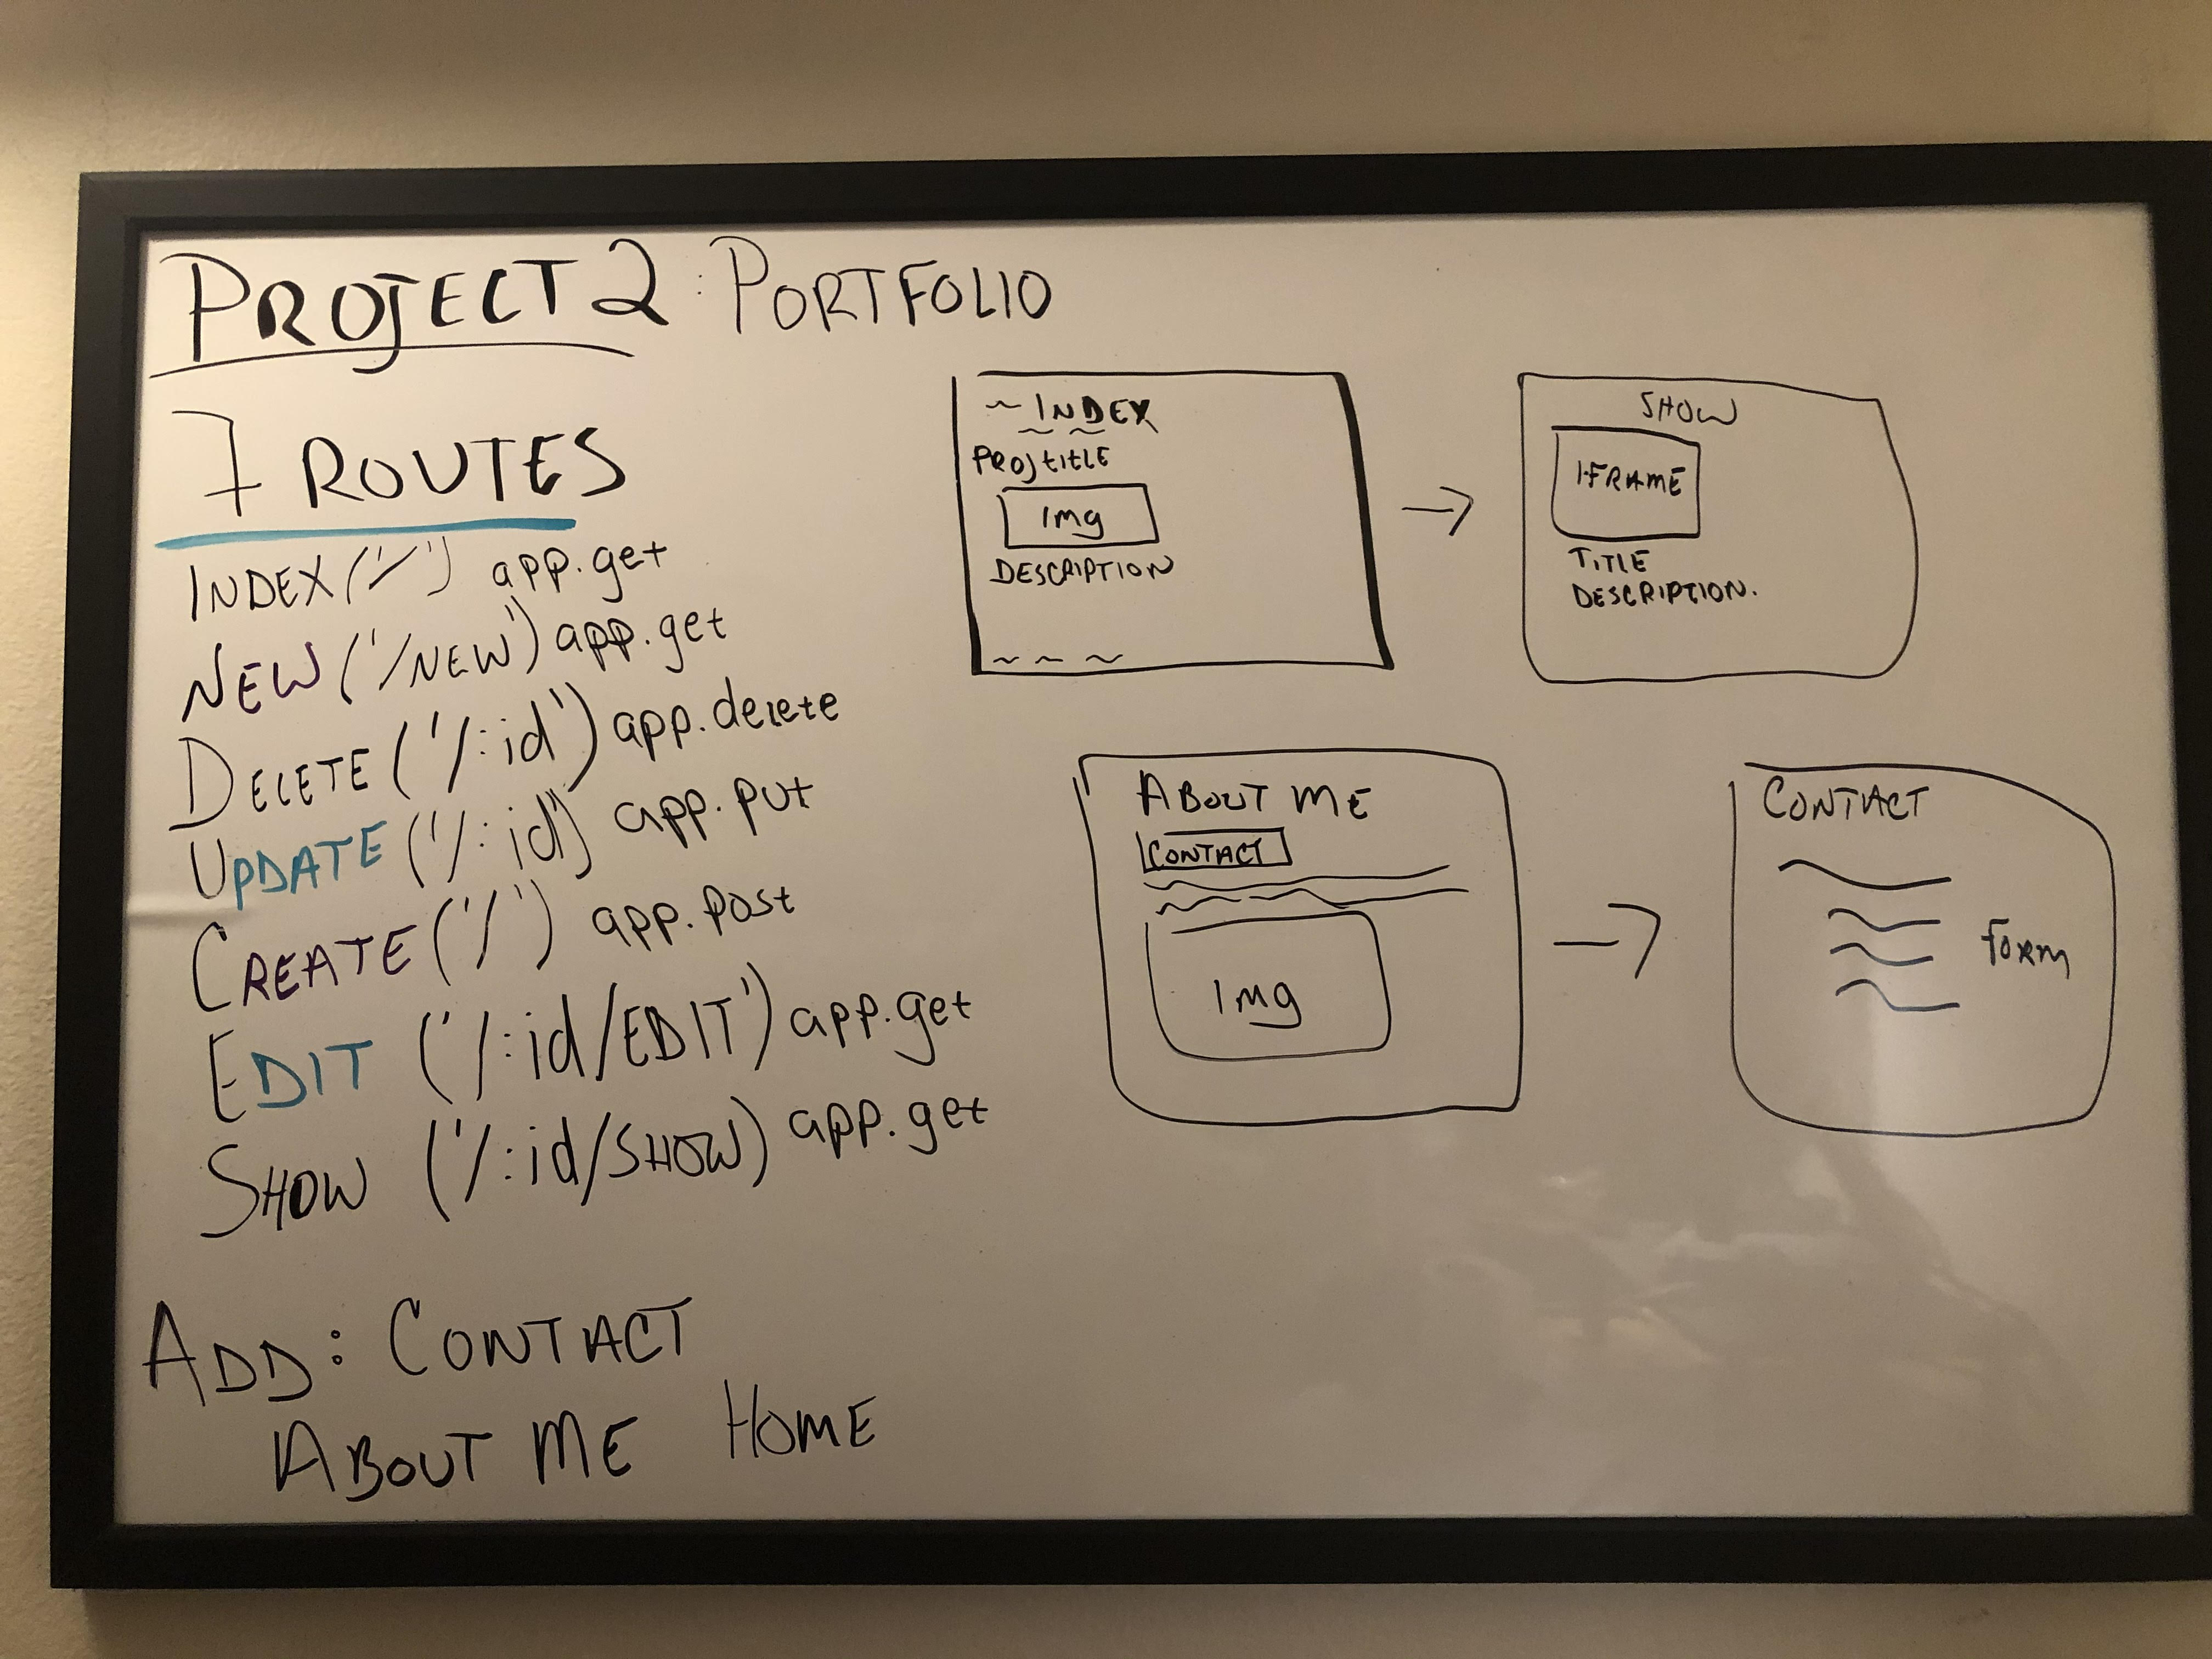 PROJECT 2 : PORTFOLIO
7 ROUTES
INDEX ('/') app.get
NEW ('/NEW') app.get
DELETE ('/:id') app.delete
UPDATE ('/:id') app.put
CREATE ('/') app.post
EDIT ('/:id/EDIT') app.get
SHOW ('/:id/SHOW) app.get
ADD: CONTACT
ABOUT ME HOME
~ INDEX
PROJ TITLE
Img
DESCRIPTION
~ ~ ~
→
SHOW
I-FRAME
TITLE
DESCRIPTION.
ABOUT ME
CONTACT
Img
→
CONTACT
form